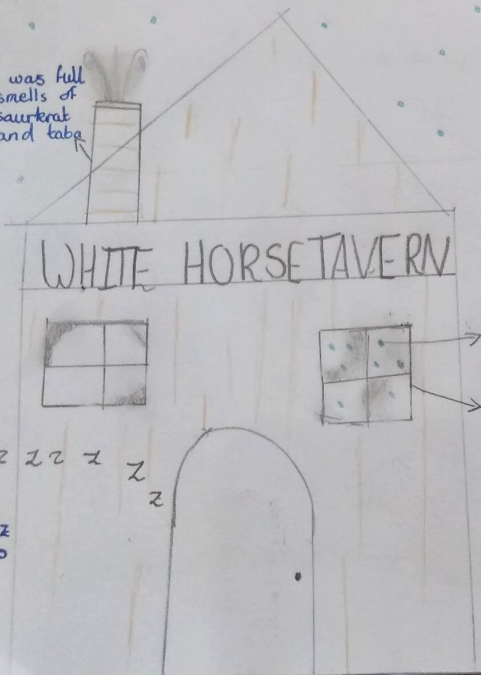 was full
smells of
saurkrat
and taba
WHITE HORSE TAVERN
z z z z z
z
z